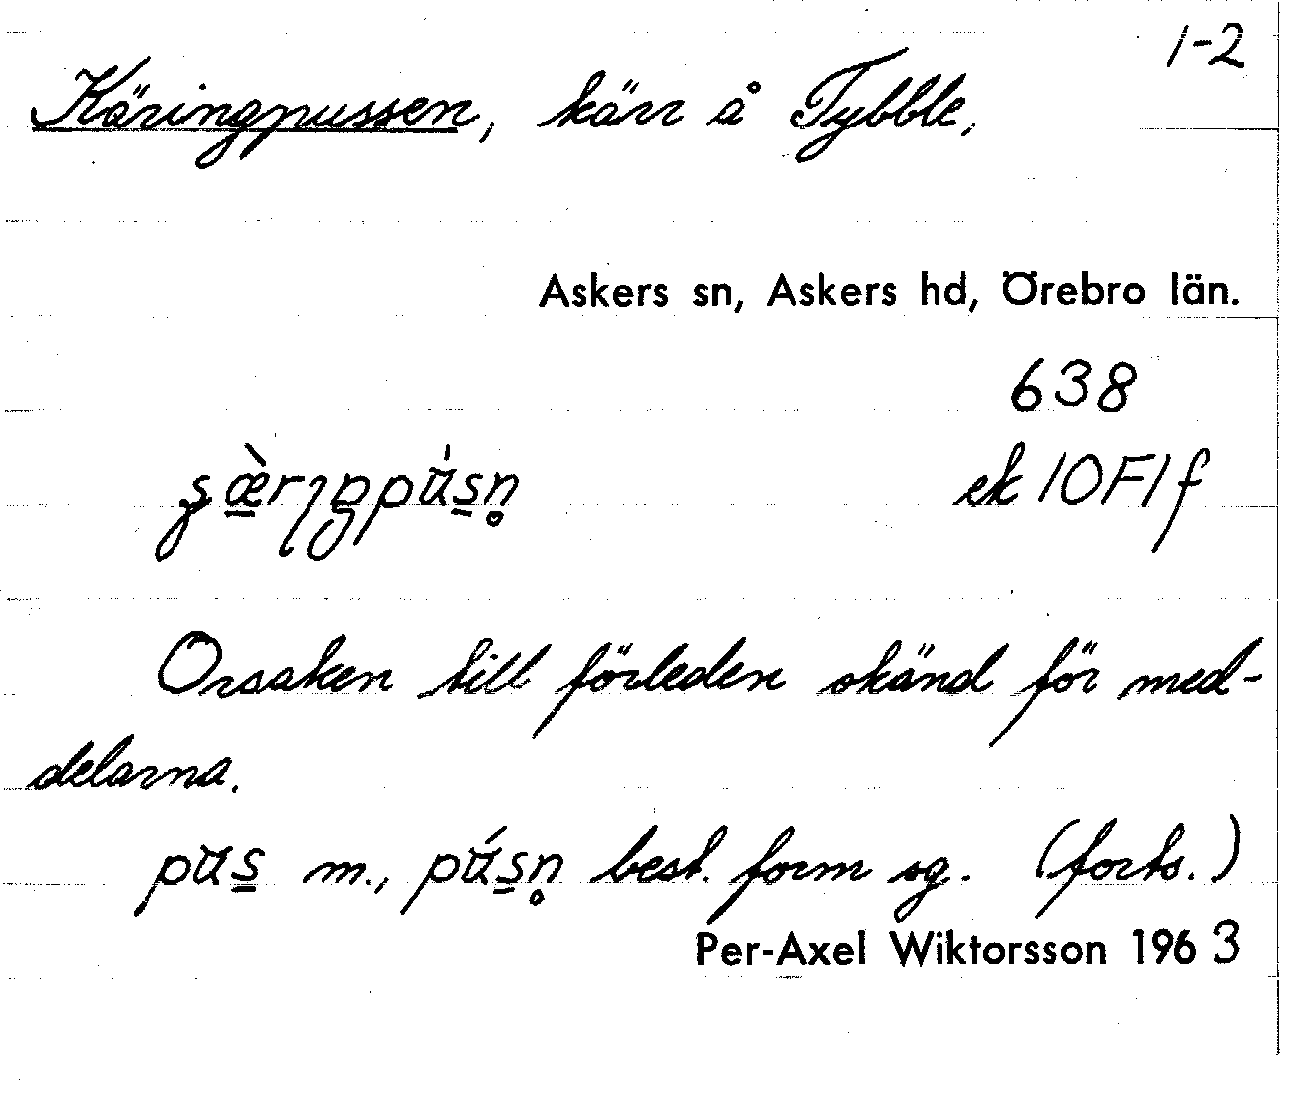 1-2
Käringpussen, kärr å Tybble,
Askers sn, Askers hd, Örebro län.
638
ek 10F1f
Orsaken till förleden okänd för med-
delarna.
m., best. form sg. (forts.)
Per-Axel Wiktorsson 1963